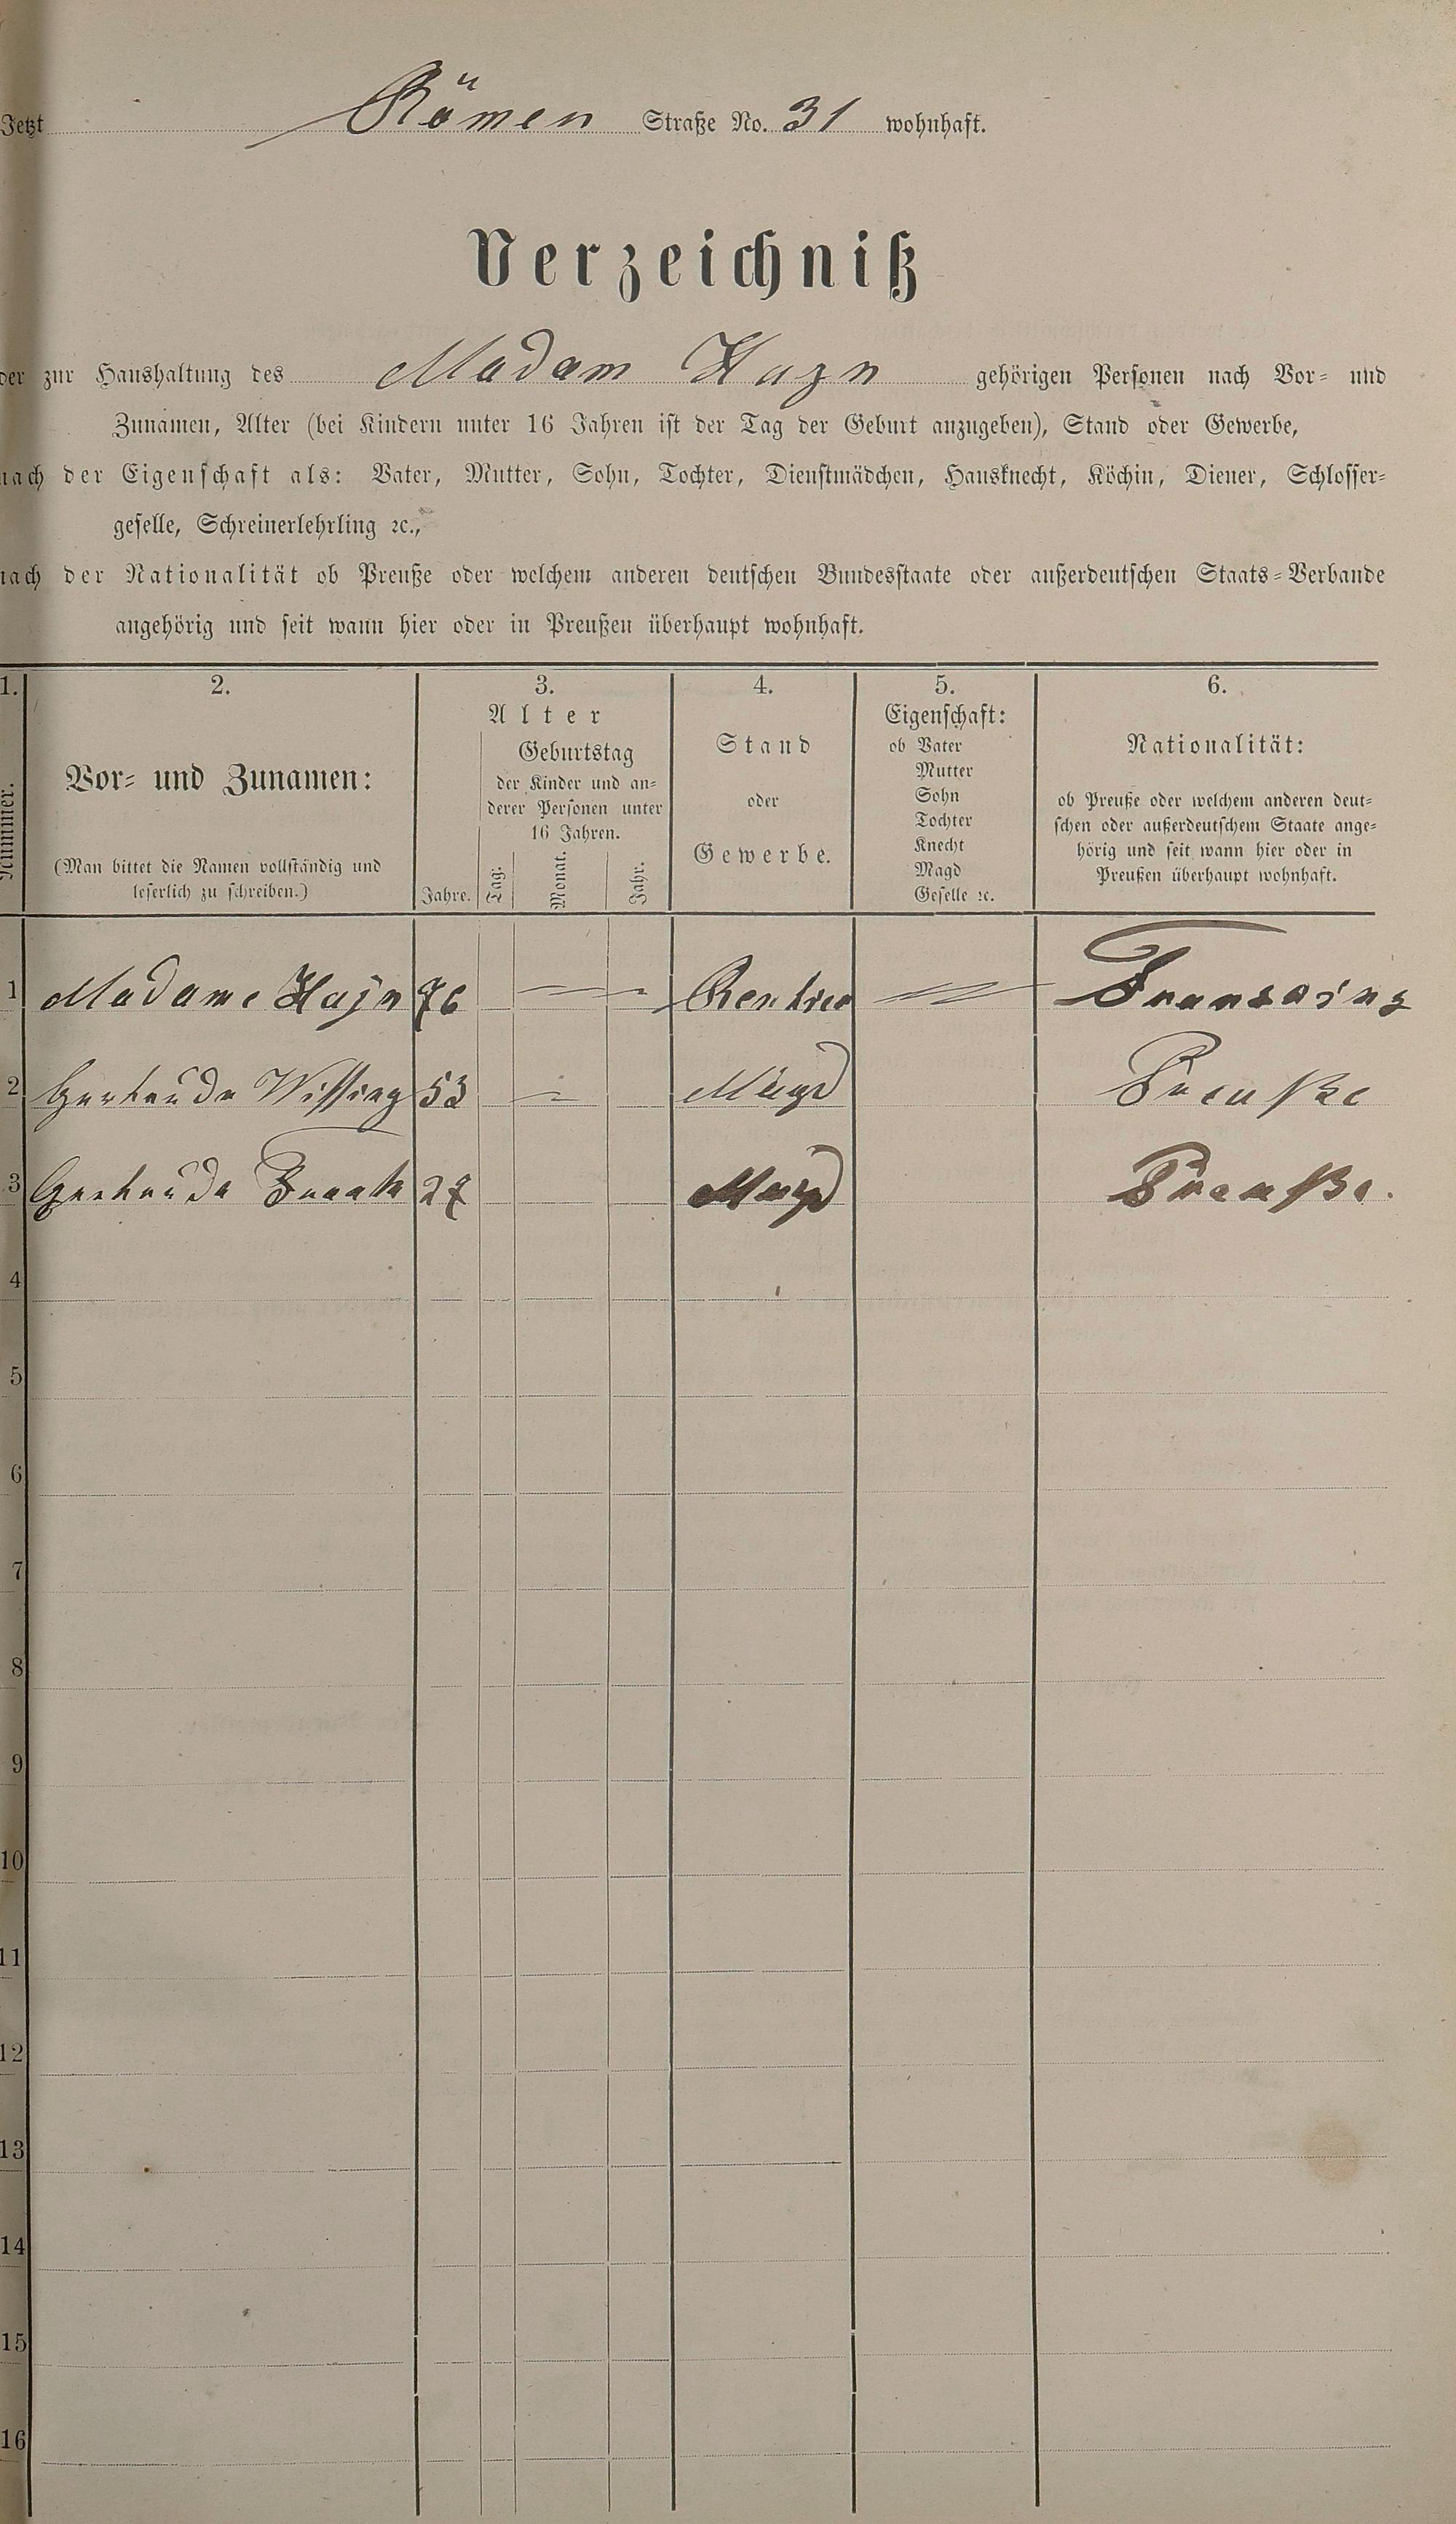 Jetzt Römer Straße No. 31 wohnhaft.
Verzeichniß
der zur Haushaltung des Madam Hazn gehörigen Personen nach Vor- und
Zunamen, Alter (bei Kindern unter 16 Jahren ist der Tag der Geburt anzugeben), Stand oder Gewerbe,
nach der Eigenschaft als: Vater, Mutter, Sohn, Tochter, Dienstmädchen, Hausknecht, Köchin, Diener, Schlosser-
geselle, Schreinerlehrling ꝛc.,
nach der Nationalität ob Preuße oder welchem anderen deutschen Bundesstaate oder außerdeutschen Staats-Verbande
angehörig und seit wann hier oder in Preußen überhaupt wohnhaft.
1.
Nummer.
2.
Vor- und Zunamen:
(Man bittet die Namen vollständig und
leserlich zu schreiben.)
3.
Alter
Jahre.
Geburtstag
der Kinder und an-
derer Personen unter
16 Jahren.
Tag. Monat. Jahr.
4.
Stand
oder
Gewerbe.
5.
Eigenschaft:
ob Vater
Mutter
Sohn
Tochter
Knecht
Magd
Geselle ꝛc.
6.
Nationalität:
ob Preuße oder welchem anderen deut-
schen oder außerdeutschem Staate ange-
hörig und seit wann hier oder in
Preußen überhaupt wohnhaft.
1 Madame 76
2 Gertrude Wissing 53 Magd Preuße
3 Gertrude 27 Magd Preuße.
4
5
6
7
8
9
10
11
12
13
14
15
16